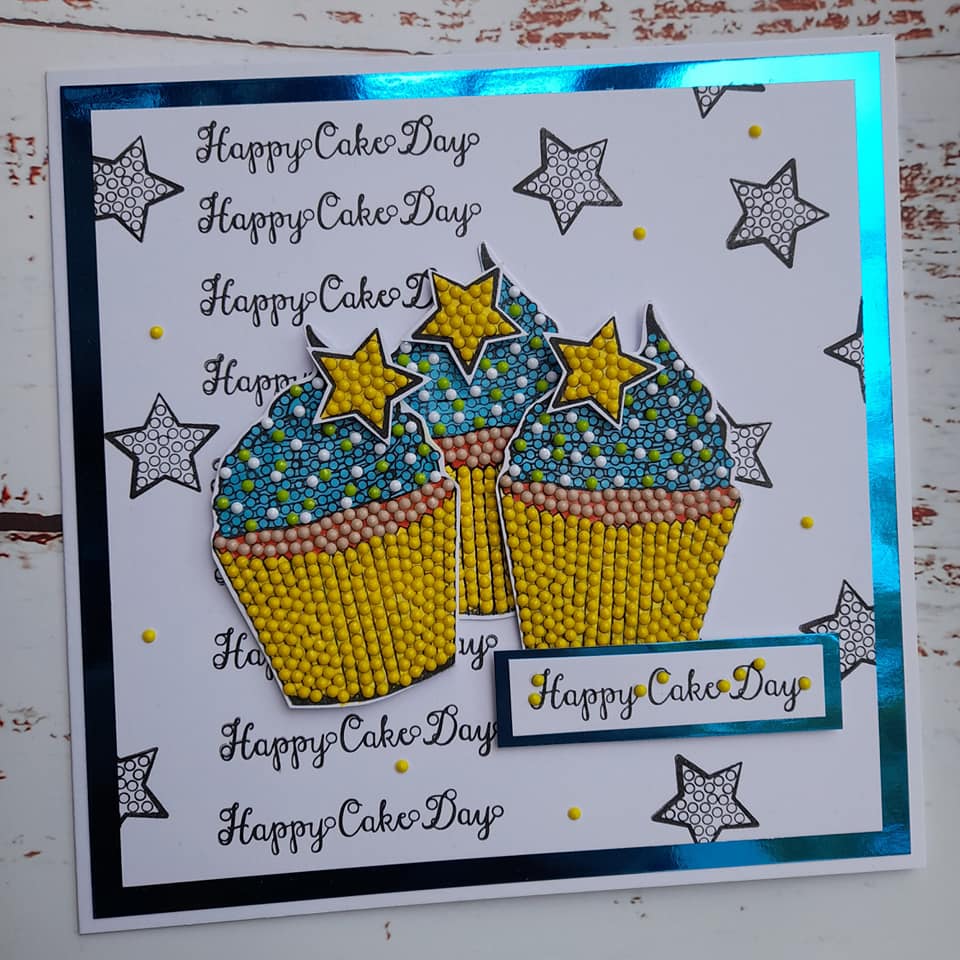 Happy Cake Day
Happy Cake Day
Happy Cake D
Happy
Ha
Happy Cake Day
Happy Cake Day
Happy Cake Day